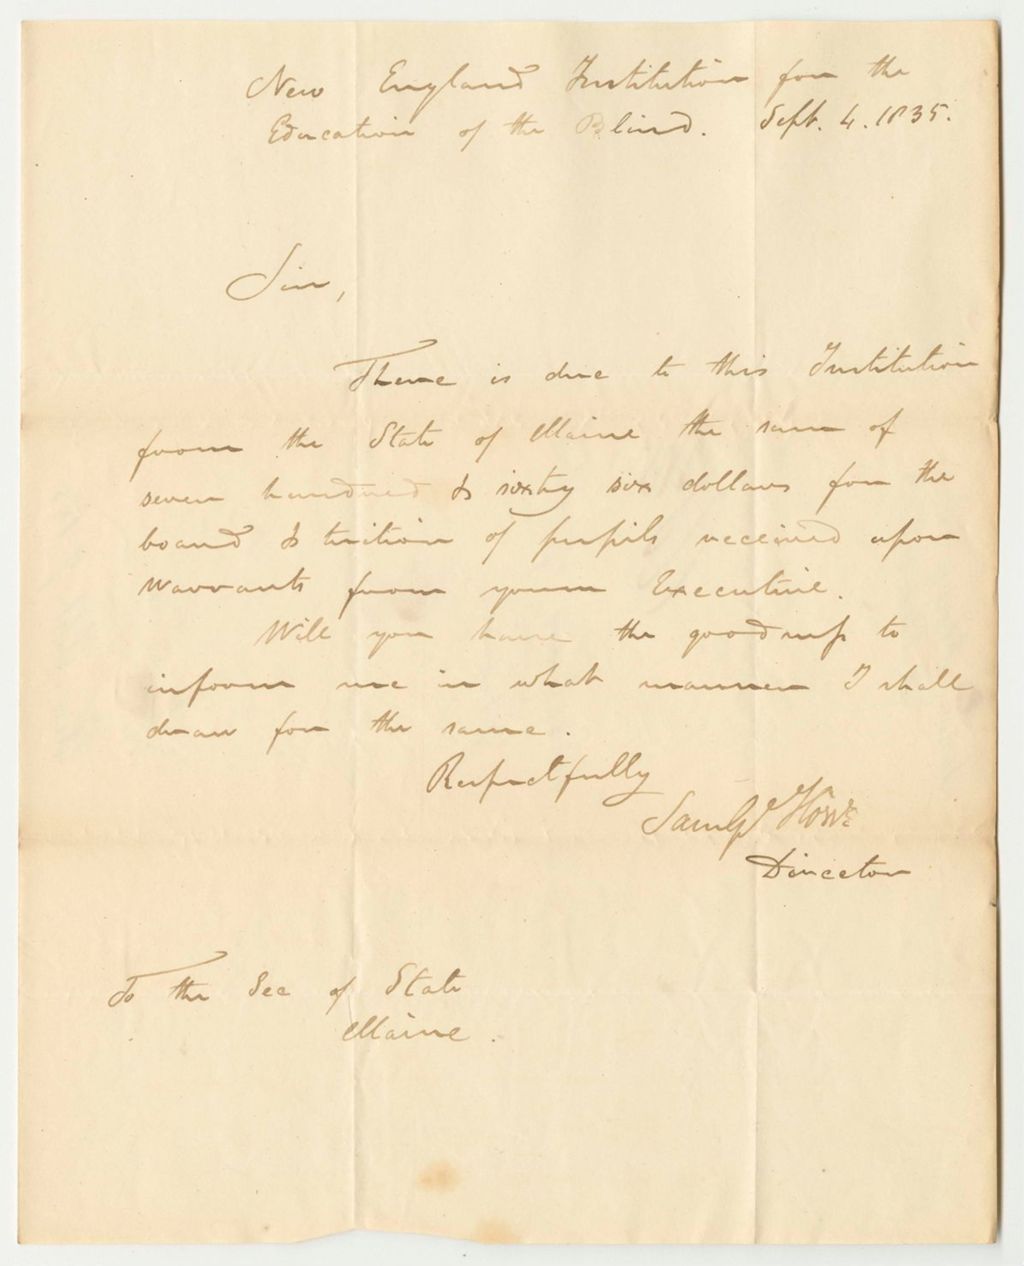 New England Institution for the
Education of the Blind. Sept. 4. 1835.
Sir,
There is due to this Institution
from the State of Maine the sum of
seven hundred & sixty six dollars for the
board & tuition of pupils received upon
warrants from your Executive.
Will you have the goodness to
inform me in what manner I shall
draw for the same.
Respectfully
Saml G Howe
Director
To the Sec of State
Maine.